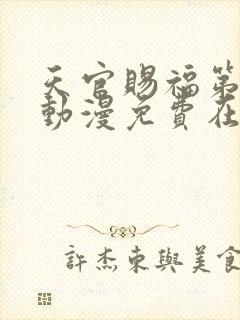 天官賜福第
動漫免費在
許杰東與美食